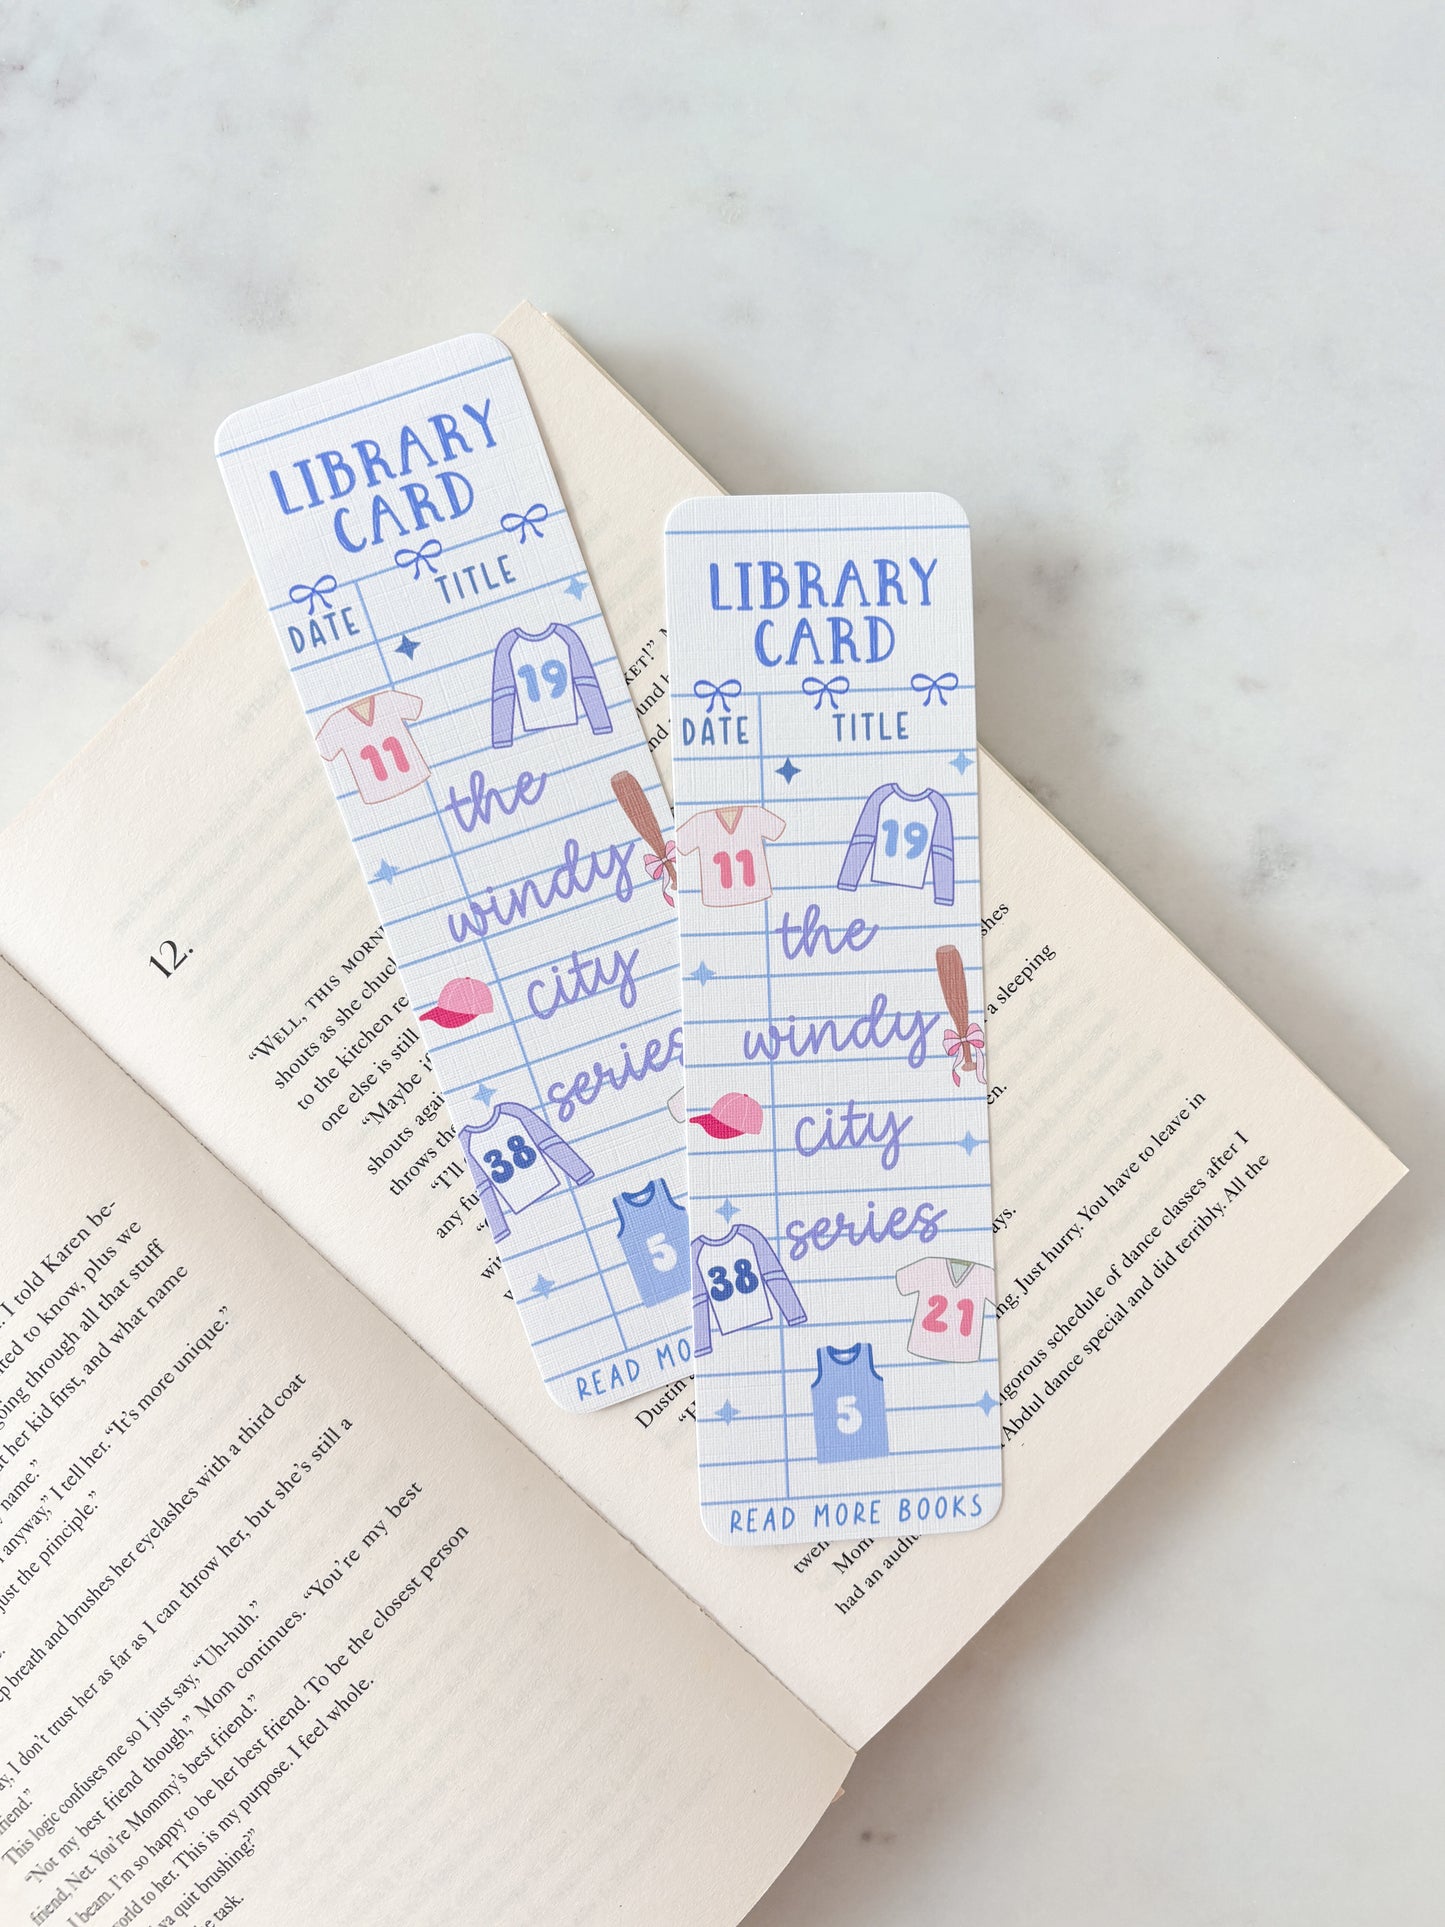 LIBRARY
CARD
DATE
TITLE
19
11
the
windy
city
series
38
5
READ MO
LIBRARY
CARD
DATE
TITLE
19
11
the
windy
city
series
38
21
5
READ MORE BOOKS
12.
“WELL, THIS MORN
shouts as she chuc
to the kitchen re
one else is still
“Maybe if
shouts agai
throws the
“I’ll
any fu
Dustin
KET!”
und
nd
shes
a sleeping
en.
ays.
ng. Just hurry. You have to leave in
igorous schedule of dance classes after I
Abdul dance special and did terribly. All the
twen
Mom
had an audi
I told Karen be-
ted to know, plus we
going through all that stuff
her kid first, and what name
name.”
anyway,” I tell her. “It’s more unique.”
just the principle.”
ep breath and brushes her eyelashes with a third coat
I don’t trust her as far as I can throw her, but she’s still a
riend.”
This logic confuses me so I just say, “Uh-huh.”
“Not my best friend though,” Mom continues. “You’re my best
friend, Net. You’re Mommy’s best friend.”
I beam. I’m so happy to be her best friend. To be the closest person
world to her. This is my purpose. I feel whole.
quit brushing?”
task.